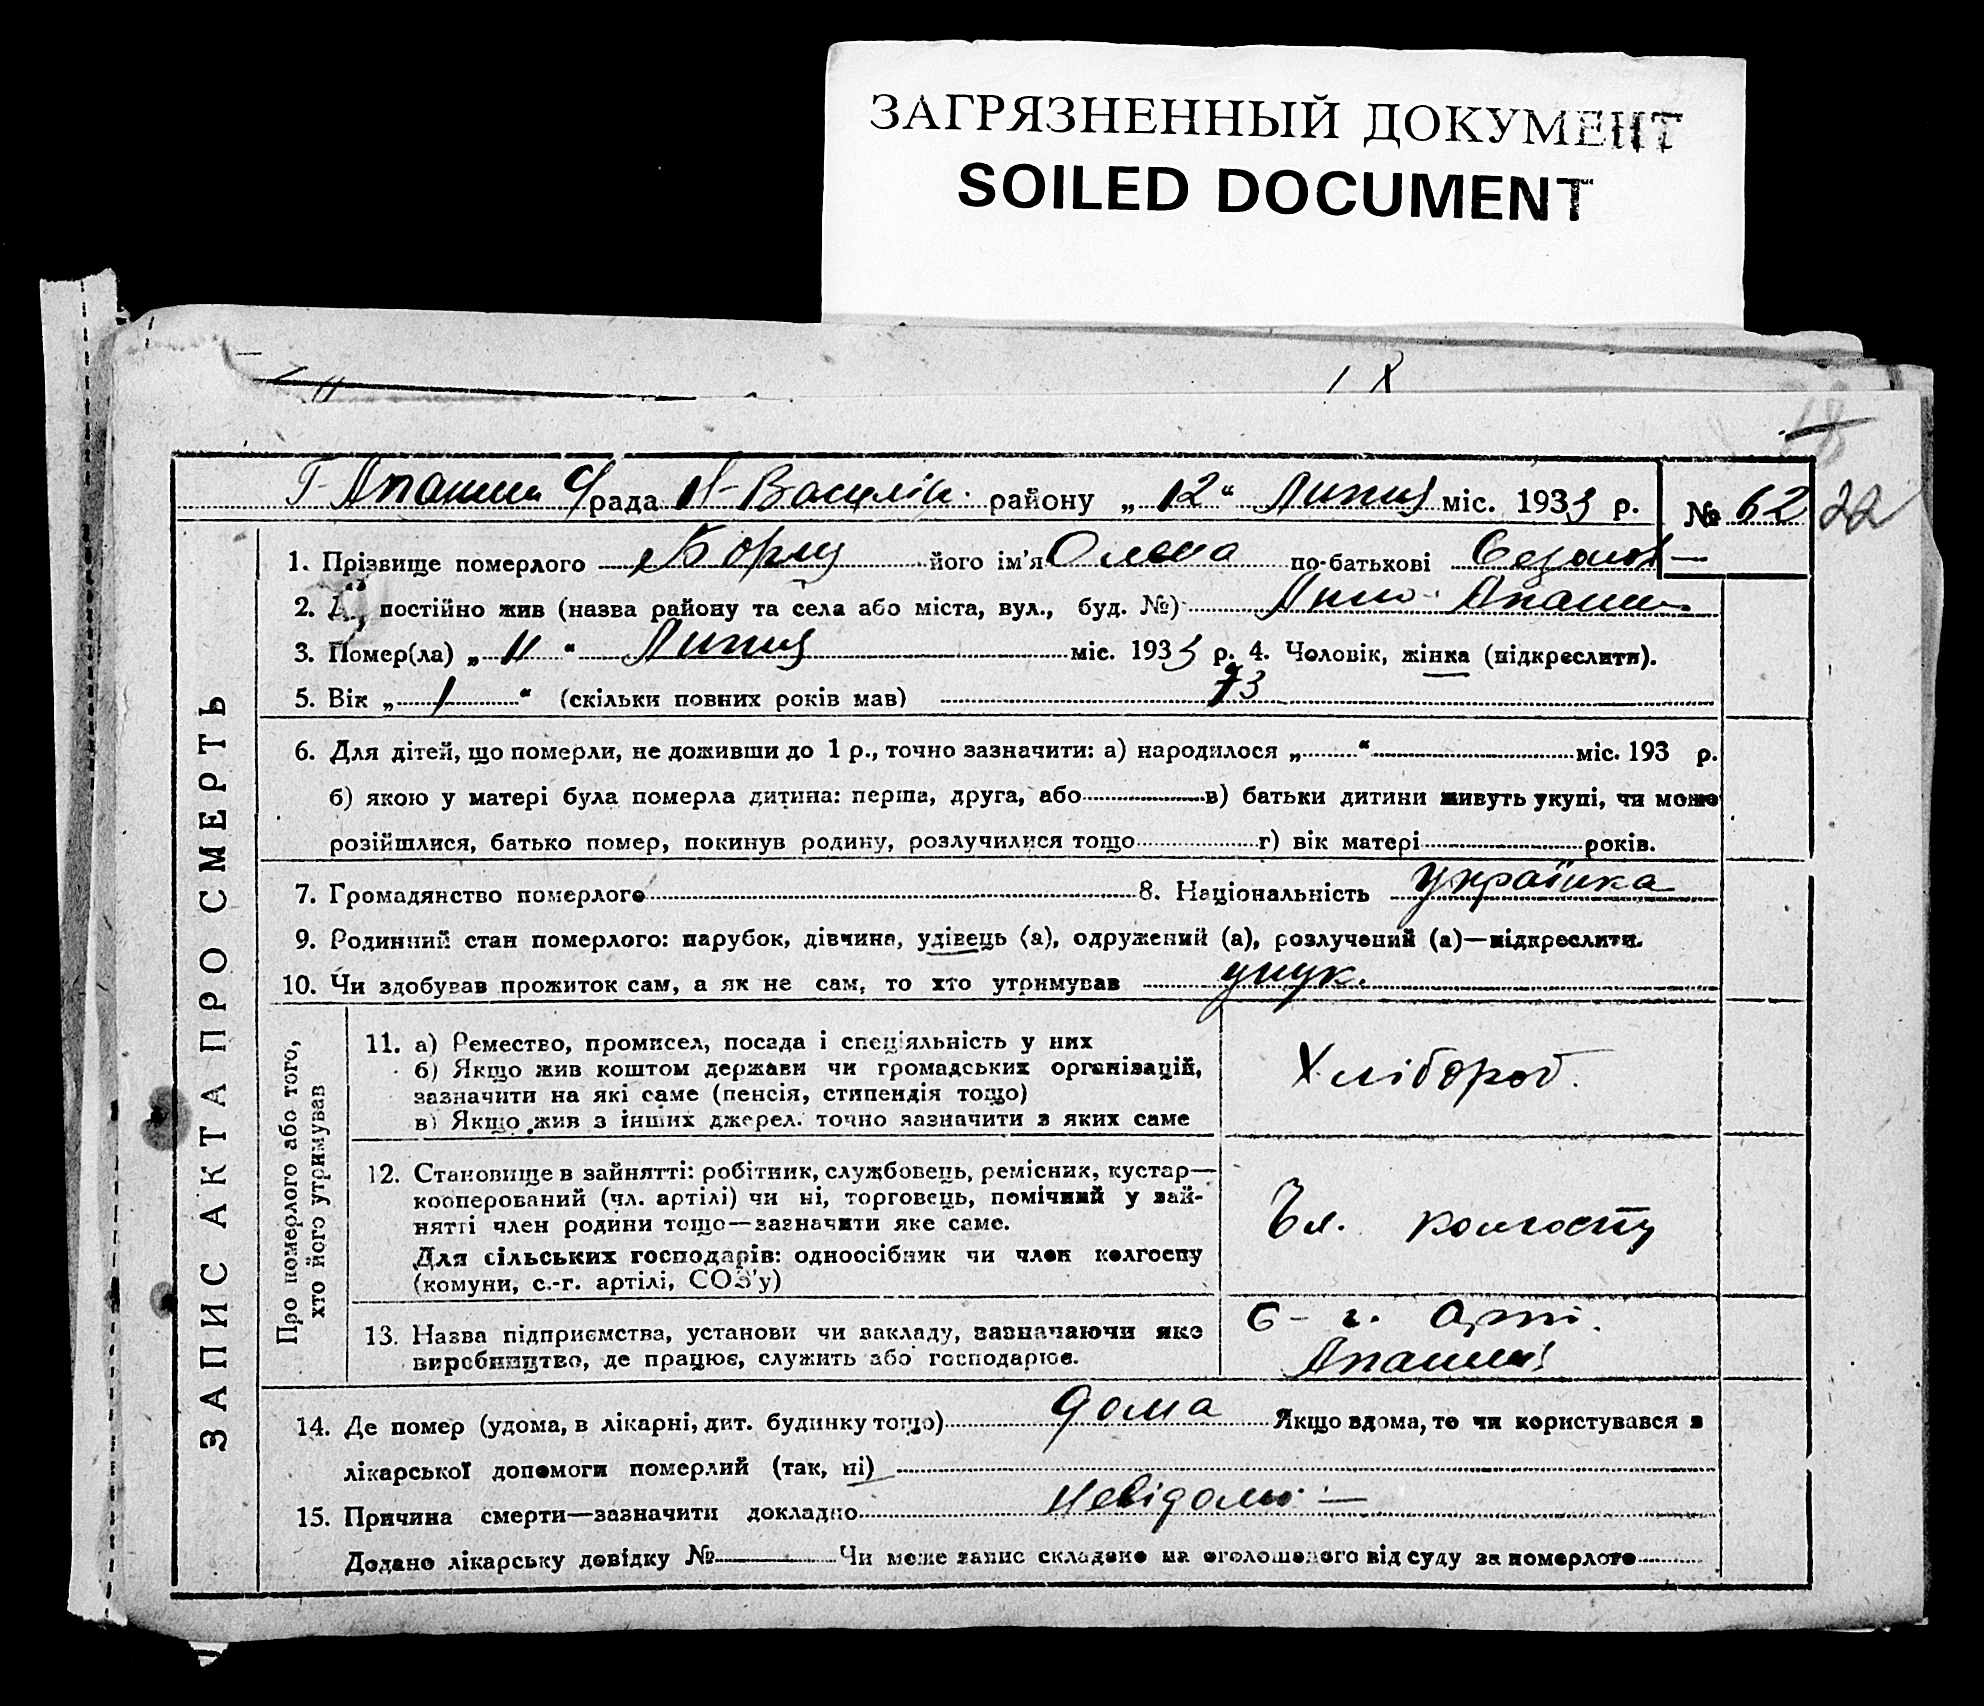 ЗАГРЯЗНЕННЫЙ ДОКУМЕНТ
SOILED DOCUMENT
18
рада Н-Василів. району „12“ Липня міс. 1933 р. № 62 22
1. Прізвище померлого його ім'я Олена по-батькові
2. Де постійно жив (назва району та села або міста, вул., буд. №)
3. Помер(ла) „11“ Липня міс. 1933 р. 4. Чоловік, жінка (підкреслити).
5. Вік „1“ (скільки повних років мав) 73
6. Для дітей, що померли, не доживши до 1 р., точно зазначити: а) народилося „ “ міс. 193 р.
б) якою у матері була померла дитина: перша, друга, або в) батьки дитини живуть укупі, чи може
розійшлися, батько помер, покинув родину, розлучилися тощо г) вік матері років.
7. Громадянство померлого 8. Національність українка
9. Родинний стан померлого: парубок, дівчина, удівець (а), одружений (а), розлучений (а)—підкреслити.
10. Чи здобував прожиток сам, а як не сам, то хто утримував унук.
ЗАПИС АКТА ПРО СМЕРТЬ
Про померлого або того,
хто його утримував
11. а) Ремество, промисел, посада і спеціяльність у них
б) Якщо жив коштом держави чи громадських організацій,
зазначити на які саме (пенсія, стипендія тощо)
в) Якщо жив з інших джерел. точно зазначити з яких саме
Хлібороб.
12. Становище в зайнятті: робітник, службовець, ремісник, кустар—
кооперований (чл. артілі) чи ні, торговець, помічний у зай-
нятті член родини тощо—зазначити яке саме.
Для сільських господарів: одноосібник чи член колгоспу
(комуни, с.-г. артілі, СОЗ'у)
Чл. колгоспу
13. Назва підприємства, установи чи закладу, зазначаючи яке
виробництво, де працює, служить або господарює.
С-г. Арті.
14. Де помер (удома, в лікарні, дит. будинку тощо) дома Якщо вдома, то чи користувався з
лікарської допомоги померлий (так, ні)
15. Причина смерти—зазначити докладно невідомо —
Додано лікарську довідку № Чи може запис складено на оголошеного від суду за померлого